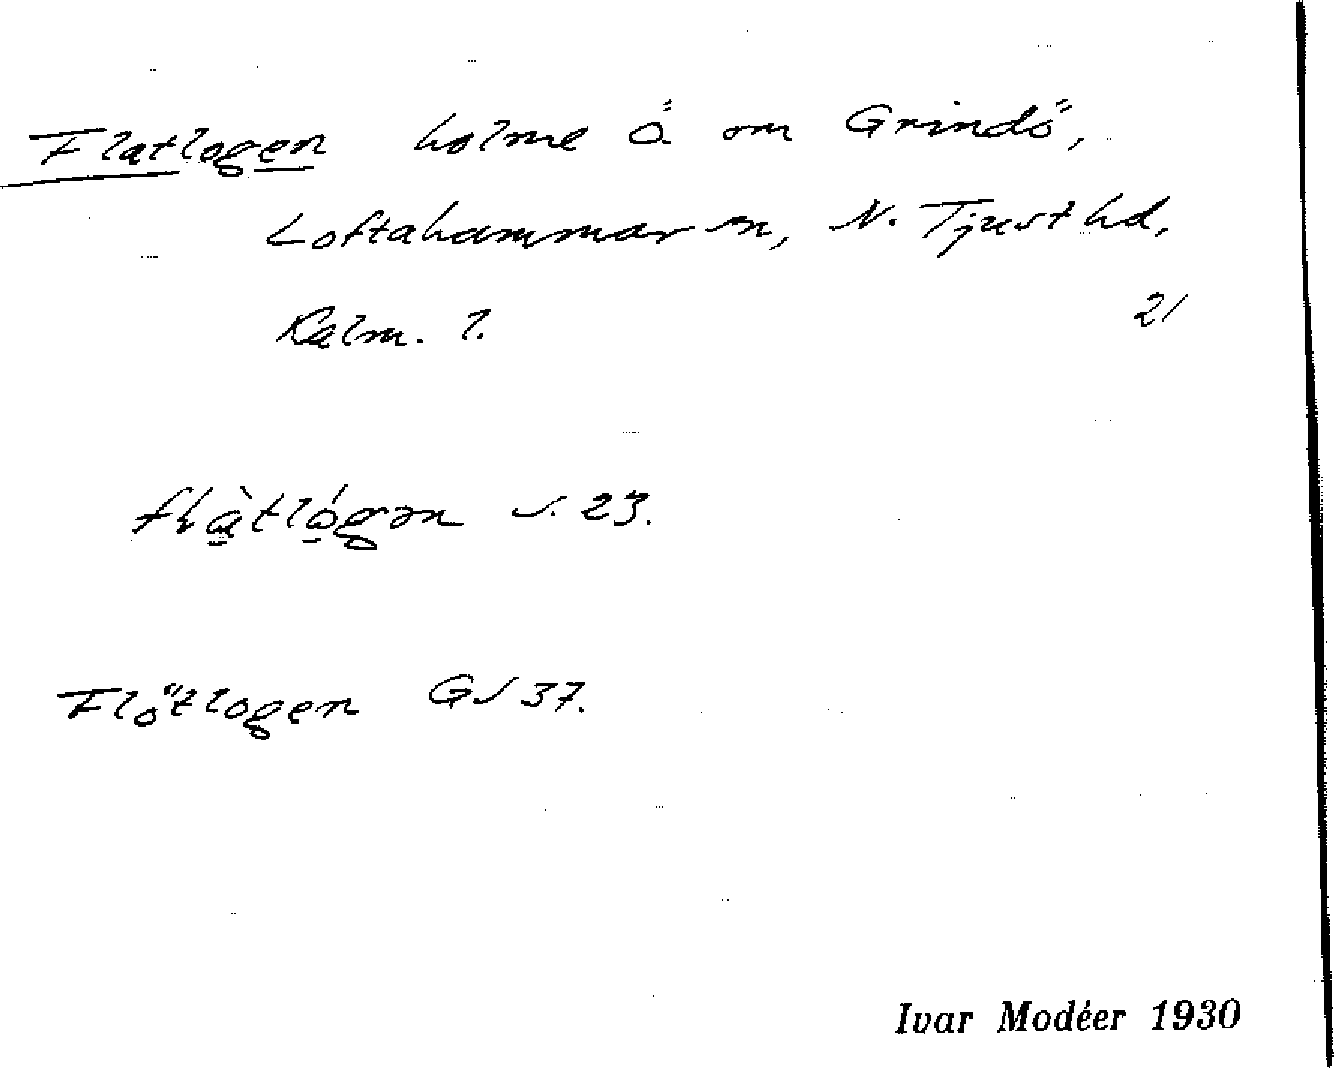 Flatlogen holme Ö om Grindö,
Loftahammar sn, N. Tjust hd,
Kalm. l. 21
flàtlógən s. 23.
Flötlogen GS 37.
Ivar Modéer 1930